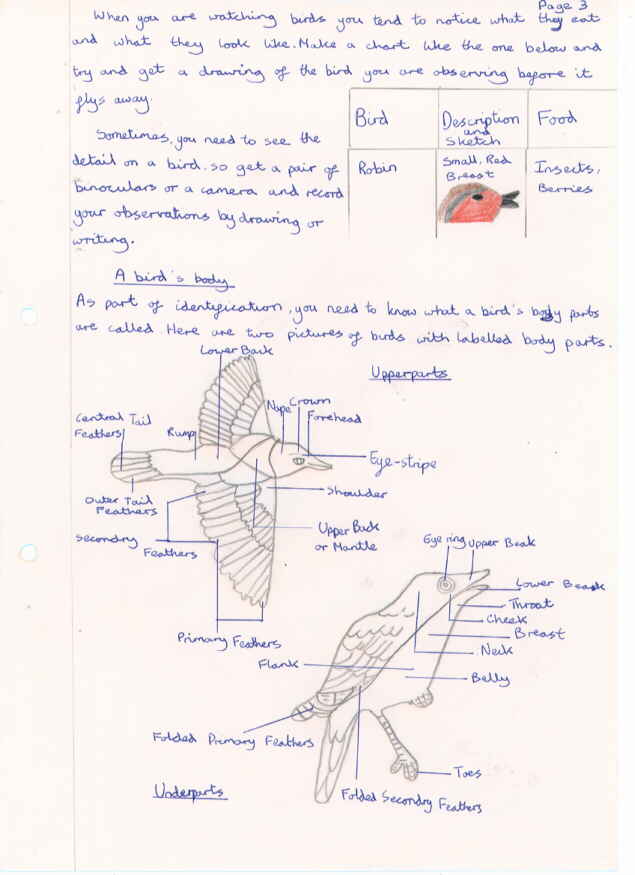 Page 3
When you are watching birds you tend to notice what they eat
and what they look like. Make a chart like the one below and
try and get a drawing of the bird you are observing before it
flys away.
Bird
Description
and
Sketch
Food
Robin
Small, Red
Breast
Insects,
Berries
Sometimes, you need to see the
detail on a bird. so get a pair of
binoculars or a camera and record
your observations by drawing or
writing.
A bird's body
As part of identification, you need to know what a bird's body parts
are called. Here are two pictures of birds with labelled body parts.
Upperparts
Lower Back
Central Tail
Feathers
Rump
Nape
Crown
Forehead
Eye-stripe
Outer Tail
Feathers
Shoulder
Secondry
Feathers
Upper Back
or Mantle
Primary Feathers
Eye ring
Upper Beak
Lower Beak
Throat
Cheek
Breast
Neck
Flank
Belly
Folded Primary Feathers
Toes
Underparts
Folded Secondry Feathers